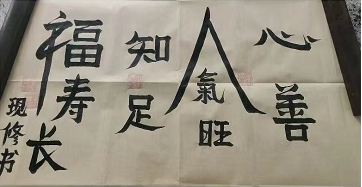 心善
人氣旺
知足
福寿长
现修书